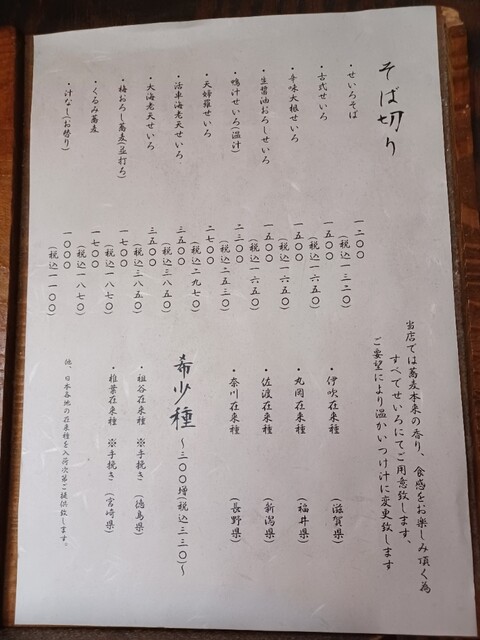 そば切り
・せいろそば
一二〇〇
(税込一三二〇)
・古式せいろ
一五〇〇
(税込一六五〇)
・辛味大根せいろ
一五〇〇
(税込一六五〇)
・生醤油おろしせいろ
一五〇〇
(税込一六五〇)
・鴨汁せいろ(温汁)
二三〇〇
(税込二五三〇)
・天婦羅せいろ
二七〇〇
(税込二九七〇)
・活車海老天せいろ
三五〇〇
(税込三八五〇)
・大海老天せいろ
三五〇〇
(税込三八五〇)
・梅おろし蕎麦
一七〇〇
(税込一八七〇)
・くるみ蕎麦
一七〇〇
(税込一八七〇)
・汁なし(お替り)
一〇〇〇
(税込一一〇〇)
当店では蕎麦本来の香り、食感をお楽しみ頂く為
すべてせいろにてご用意致します、
ご要望により温かいつけ汁に変更致します
・伊吹在来種 (滋賀県)
・丸岡在来種 (福井県)
・佐渡在来種 (新潟県)
・奈川在来種 (長野県)
希少種 〜三〇〇増(税込三三〇)〜
・祖谷在来種 ※手挽き (徳島県)
・椎葉在来種 ※手挽き (宮崎県)
他、日本各地の在来種を入荷次第ご提供致します。